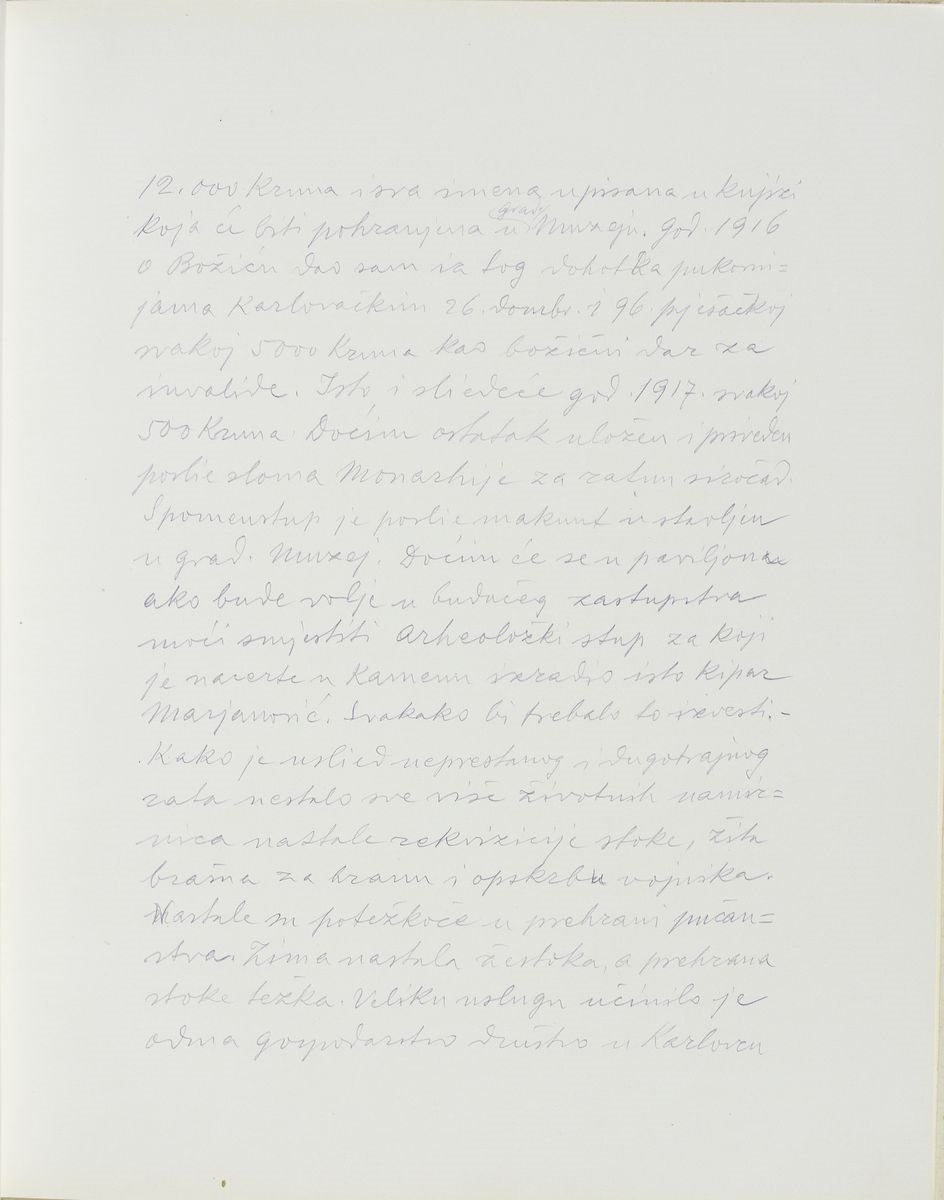 12.000 Kruna i sva imena upisana u knjizi
koja će biti pohranjena u grad. Muzeju. god. 1916
o Božiću dao sam iz tog dohotka pukovni=
jama Karlovačkim 26. dombr. i 96. pješačkoj
svakoj 5000 Kruna kao božićni dar za
invalide. Isto i sliedeće god. 1917. svakoj
500 Kruna. Doćim ostatak uložen i priveden
poslie sloma Monarhije za ratnu siročad.
Spomenstup je poslie maknut i stavljen
u grad. Muzej. Doćim će se u paviljonu
ako bude volje u budućeg zastupstva
moći smjestiti Arheoložki stup za koji
je nacrte u Kamenu izradio isto Kipar
Marjanović. Svakako bi trebalo to izvesti.-
Kako je uslied neprestanog i dugotrajnog
rata nestalo sve više životnih namir=
nica nastale rekvizicije stoke, žita
brašna za hranu i opskrbu vojnika.
Nastale su potežkoće u prehrani pučan=
stva. Zima nastala žestoka, a prehrana
stoke težka. Veliku uslugu učinilo je
odma gospodarstvo družtvo u Karlovcu